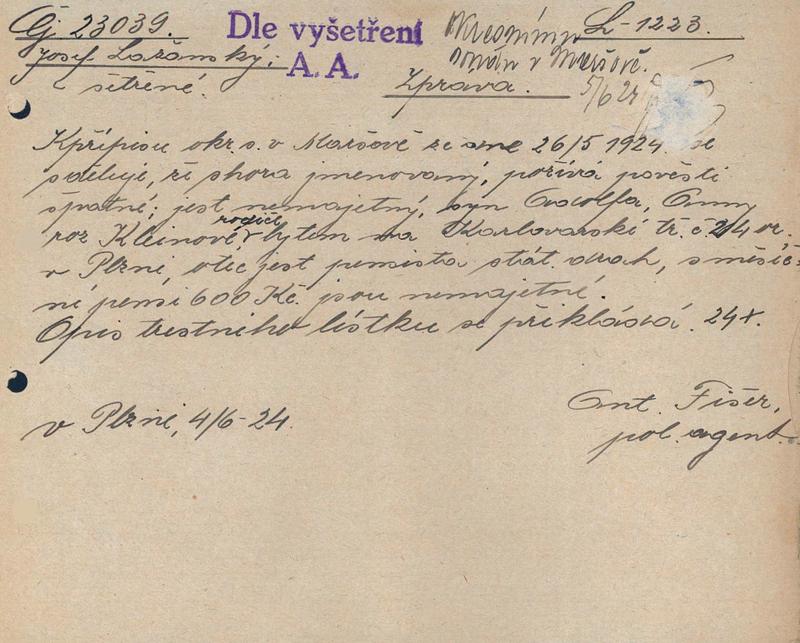 Čj 23039. L-1223.
Josef Lažanský:
šetřené.
Dle vyšetření
A. A.
Okresnímu
soudu v Maršově.
5/6 24
Zpráva.
K přípisu okr. s. v Maršově ze dne 26/5 1924 se
sděluje, že shora jmenovaný, požívá pověsti
špatné; jest nemajetný, syn Adolfa, Anny
roz Kleinové rodiče bytem na Karlovarské tř. č. 24
v Plzni, otec jest pensista stát. drah, s měsíč-
ní pensí 600 Kč. jsou nemajetné.
Opis trestního lístku se přikládá. 24x.
v Plzni, 4/6-24.
Ant. Fišer,
pol. agent.